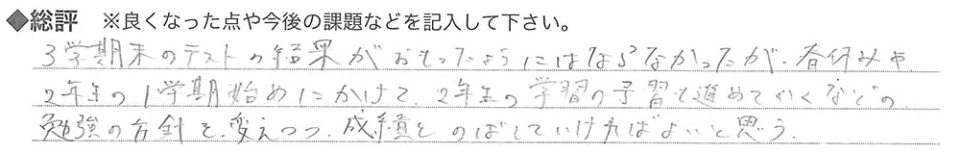 ◆総評 ※良くなった点や今後の課題などを記入して下さい。
3学期末のテストの結果がおもったようにはならなかったが、春休みや
2年生の1学期始めにかけて、2年生の学習の予習も進めていくなどの、
勉強の方針を、変えつつ、成績をのばしていければよいと思う。